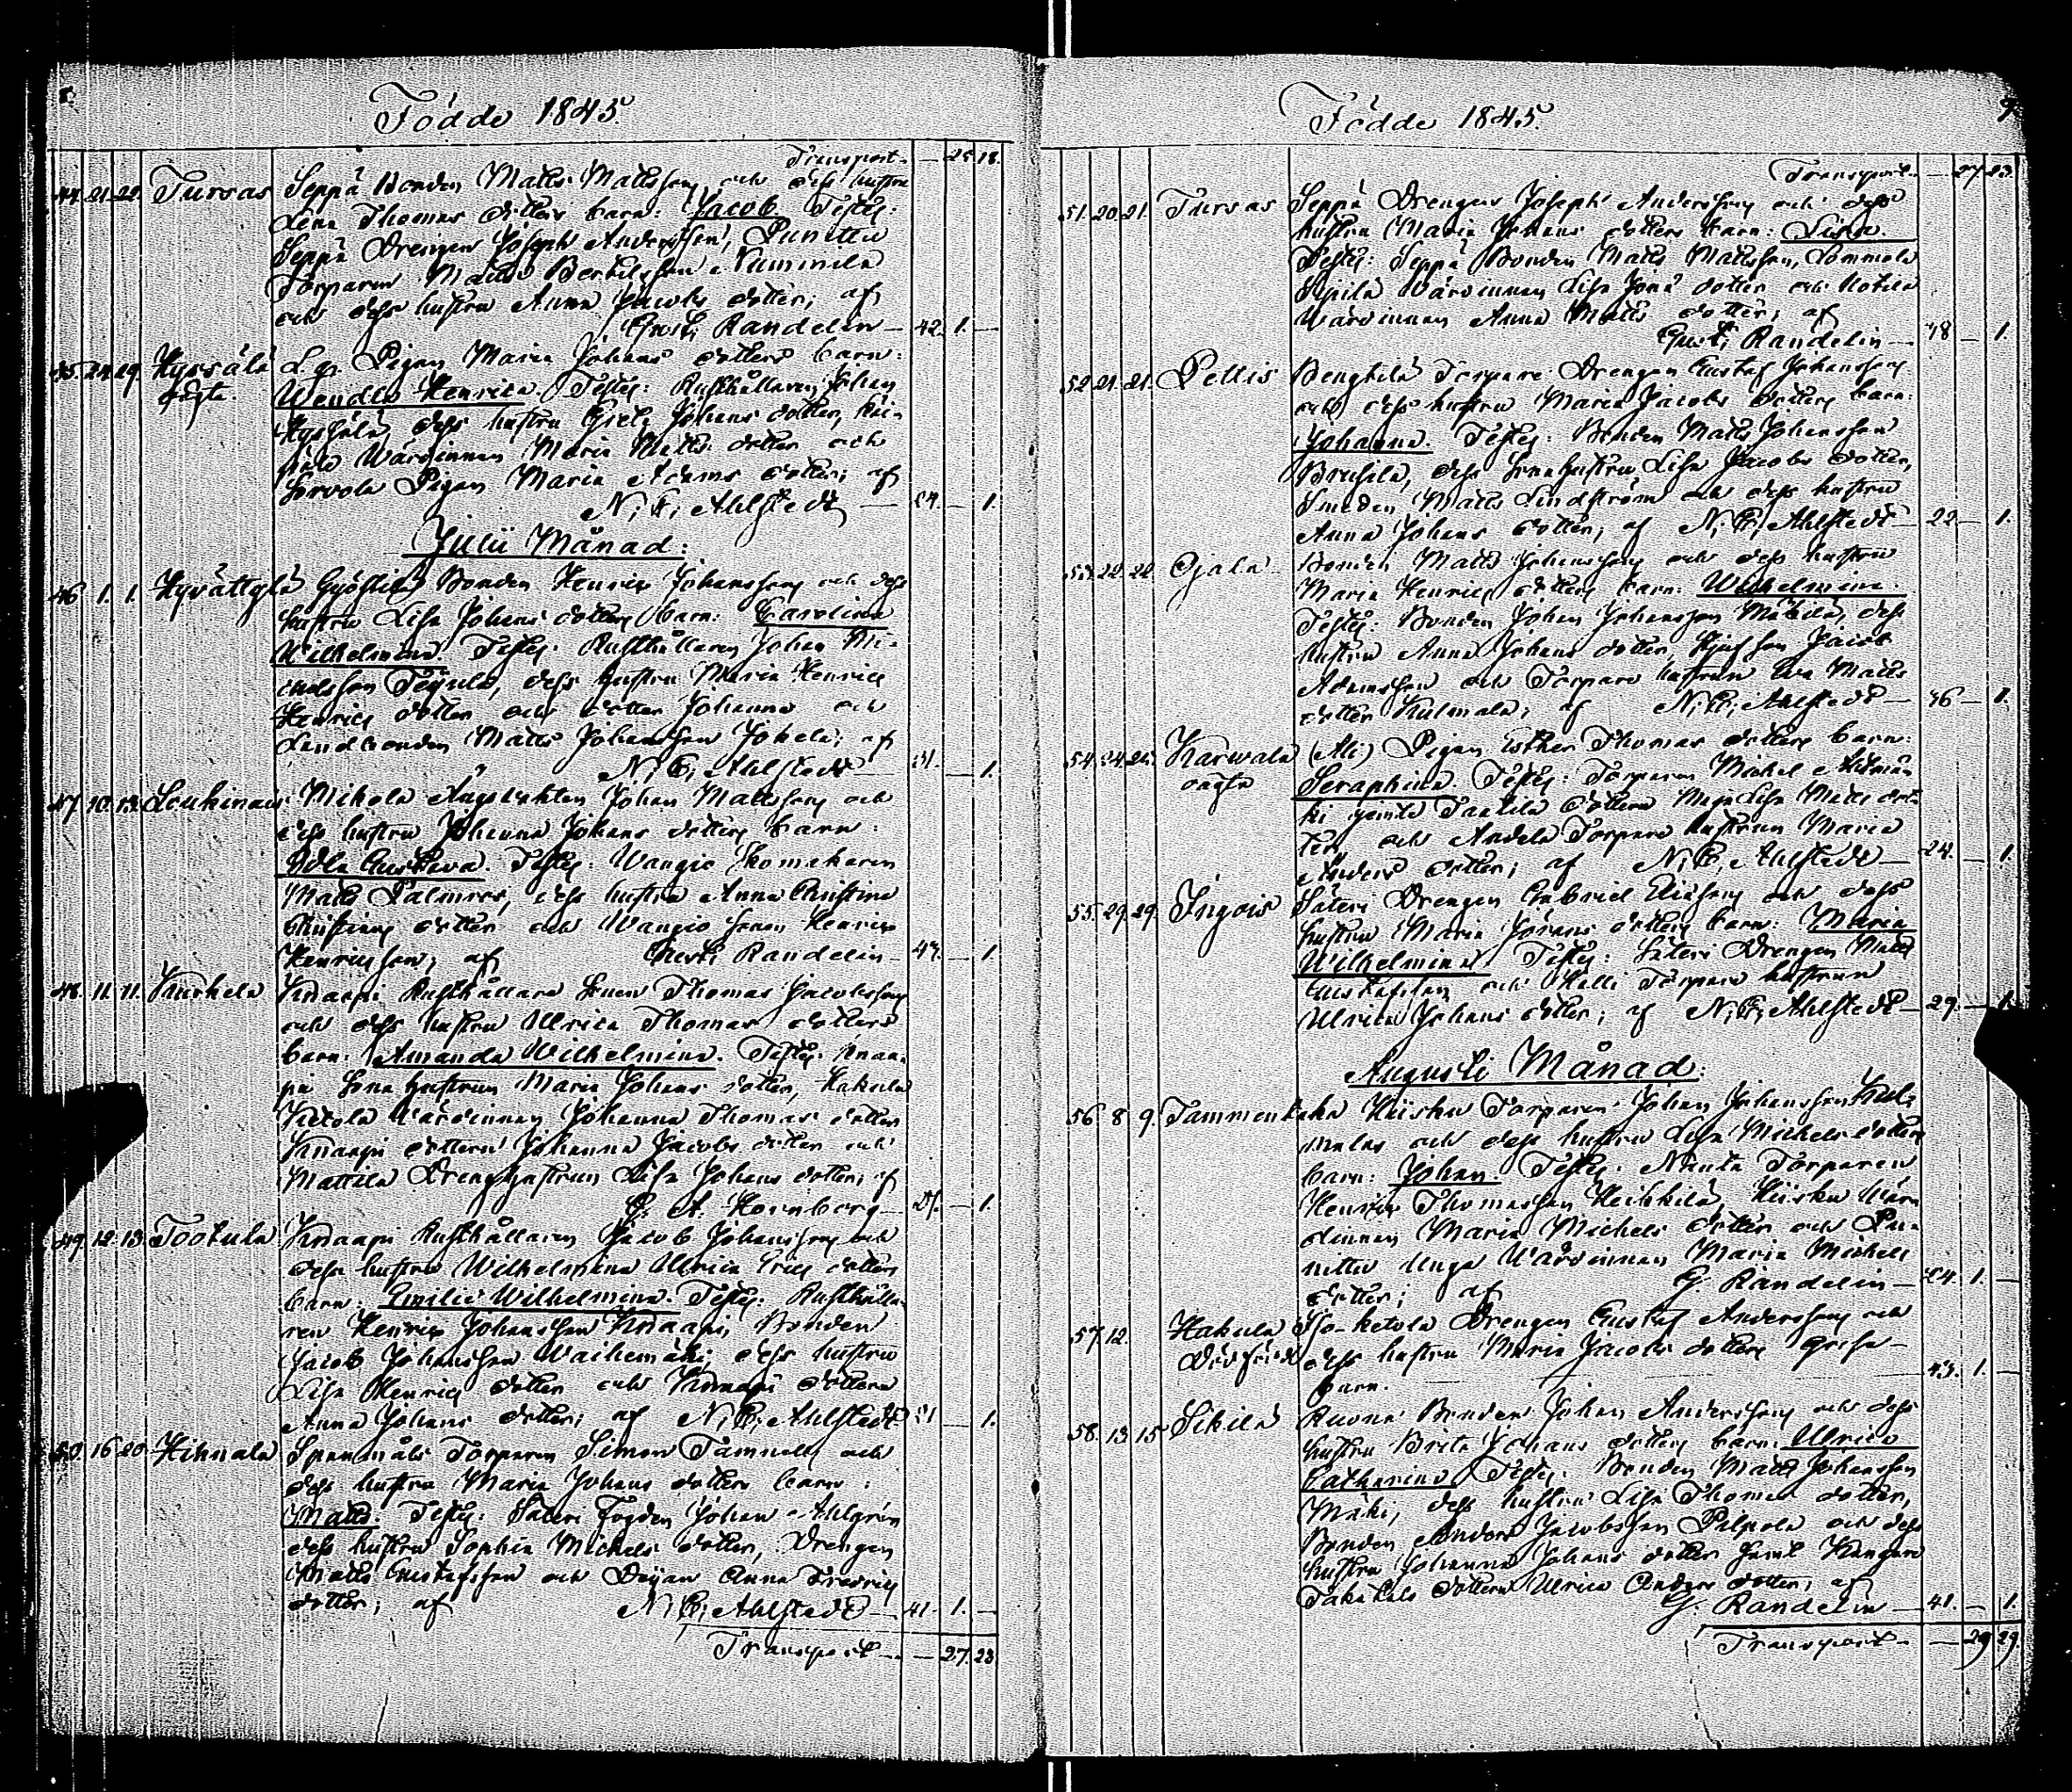 Födde 1845.
Transport — 25 18.
44. 21. 22. Tursas Seppä Bonden Matts Mattsson och dess hustru
Lena Thomas dotters barn: Jacob Testes:
Seppä Drengen Joseph Andersson, Punittu
Torparen Matts Bertilsson Nummela
och dess hustru Anna Jacobs dotter; af
Gust; Randelin — 42. 1. —
45. 24. 29. Hyrsälä
Lgr Pigan Maria Johans dotters barn:
Wendla Henrica. Testes: Rusthållaren Johan
dess hustru Gret; Johans dotter,
Wärdinnan Maria Matts dotter och
Pigan Maria Adams dotter; af
N; E; Ahlstedt — 24. — 1.
Julii Månad:
46. 1. 1. Hyvättylä Bonden Henric Johansson och dess
hustru Lisa Johans dotters barn: Carolina
Wilhelmina Testes: Rusthållaren Johan Mi-
chelsson dess hustru Maria Henrics
Henrics dotter och dotter Johanna och
Landbonden Matts Johansson Jokela; af
N; E; Ahlstedt — 31. — 1.
47. 10. 13. Loukinais Mikola Johan Mattsson och
dess hustru Johanna Johans dotters barn:
Adla Gustava Testes: Wangio Skomakaren
Matts Palmroos, dess hustru Anna Christina
dotter och Wangio Henric
Henricsson; af Gust; Randelin — 43. — 1.
48. 11. 11. Kurkela Knaapi Rusthållare Sonen Thomas Jacobsson
och dess hustru Ulrica Thomas dotters
barn: Amanda Wilhelmina. Testes: Knaa-
pi Sona hustrun Maria Johans dotter, Hakula
Ketola Wärdinnan Johanna Thomas dotter
Knaapi dottern Johanna Jacobs dotter och
Mattila Drengshustrun Lisa Johans dotter; af
C. A. Hornborg — 21. — 1.
49. 12. 13. Tootula Knaapi Rusthållaren Jacob Johansson och
dess hustru Wilhelmina Ulrica Erics dotters
barn: Emilie Wilhelmina. Testes: Rusthålla-
ren Henric Johansson Knaapi, Bonden
Jacob Johansson Waihemäki, dess hustru
Lisa Henrics dotter och Knaapi dottern
Anna Johans dotter; af N; E; Ahlstedt 21 — 1.
50. 16 20. Hihnala Torparen Simon Tammelin och
dess hustru Maria Johans dotters barn:
Matts. Testes: Säteri Fogden Johan Ahlgrén
dess hustru Sophia Michels dotter, Drengen
Matts Gustafsson och Dejan Anna Fredrics
dotter; af N; E; Ahlstedt — 41. 1. —
Transport — — 27. 23.
Födde 1845. 9
Transport — 27 23.
51. 20. 21. Tursas Seppä Drengens Joseph Andersson och dess
hustru Maria Johans dotters barn: Lisa
Testes: Seppä Bonden Matts Mattsson, Lammela
Sipilä Wärdinnan Lisa Jonä dotter och
Wärdinnan Anna Matts dotter; af
Gust; Randelin — 38 — 1.
52. 21. 21. Pellis Bengtilä Torpare Drengen Gustaf Johansson
och dess hustru Maria Jacobs dotters barn:
Johanna. Testes: Bonden Matts Johansson
Brusila, dess Sonahustru Lisa Jacobs dotter,
Smeden Matts Lindström och dess hustru
Anna Johans dotter; af N; E; Ahlstedt — 22 — 1.
53. 22. 22. Ojala Bonden Matts Johansson och dess hustru
Maria Henrics dotters barn: Wilhelmina.
Testes: Bonden Johan Johansson Mäkilä, dess
hustru Anna Johans dotter, Jacob
Adamsson och Torpare hustrun Eva Matts
dotter Kulmala; af N; E; Ahlstedt — 36 — 1.
54. 24. 25. Karvala (Ali) Pigan Esther Thomas dotters barn:
oägta Seraphina Testes: Torparen Michel
dottern Maja Lisa Matts dot-
ter och Andela Torpare hustrun Maria
Anders dotter; af N; E; Ahlstedt — 24. — 1.
55. 29. 29. Ingois Säteri Drengen Gabriel Eliasson och dess
hustru Maria Johans dotters barn: Maria
Wilhelmina Testes: Säteri Drengen Matts
Gustafsson och Halli Torpare hustrun
Ulrica Johans dotter; af N; E; Ahlstedt — 29. — 1.
Augusti Månad:
56 8 9. Tammentaka Hiisku Torparen Johan Johansson Kul-
malas och dess hustru Lisa Michels dotters
barn: Johan. Testes: Torparen
Henric Thomasson Heikkilä, Hiisku Wär-
dinnan Maria Michels dotter och Pu-
nittu Unga Wärdinnan Maria Michels
dotter; af G. Randelin — 24. 1. —
57. 12. Hakula Iso-ketola Drengen Gustaf Andersson och
Dödfödt dess hustru Maria Jacobs dotters
barn. — 43. 1. —
58. 13. 15 Sikilä Ruona Bonden Johan Andersson och dess
hustru Brita Johans dotters barn: Ulrica
Catharina Testes: Bonden Matts Johansson
Mäki, dess hustru Lisa Thomas dotter,
Bonden Anders Jacobsson Pilpola och dess
hustru Johanna Johans dotter samt
dottern Ulrica Anders dotter; af
G. Randelin — 41. — 1.
Transport — — 29 29.